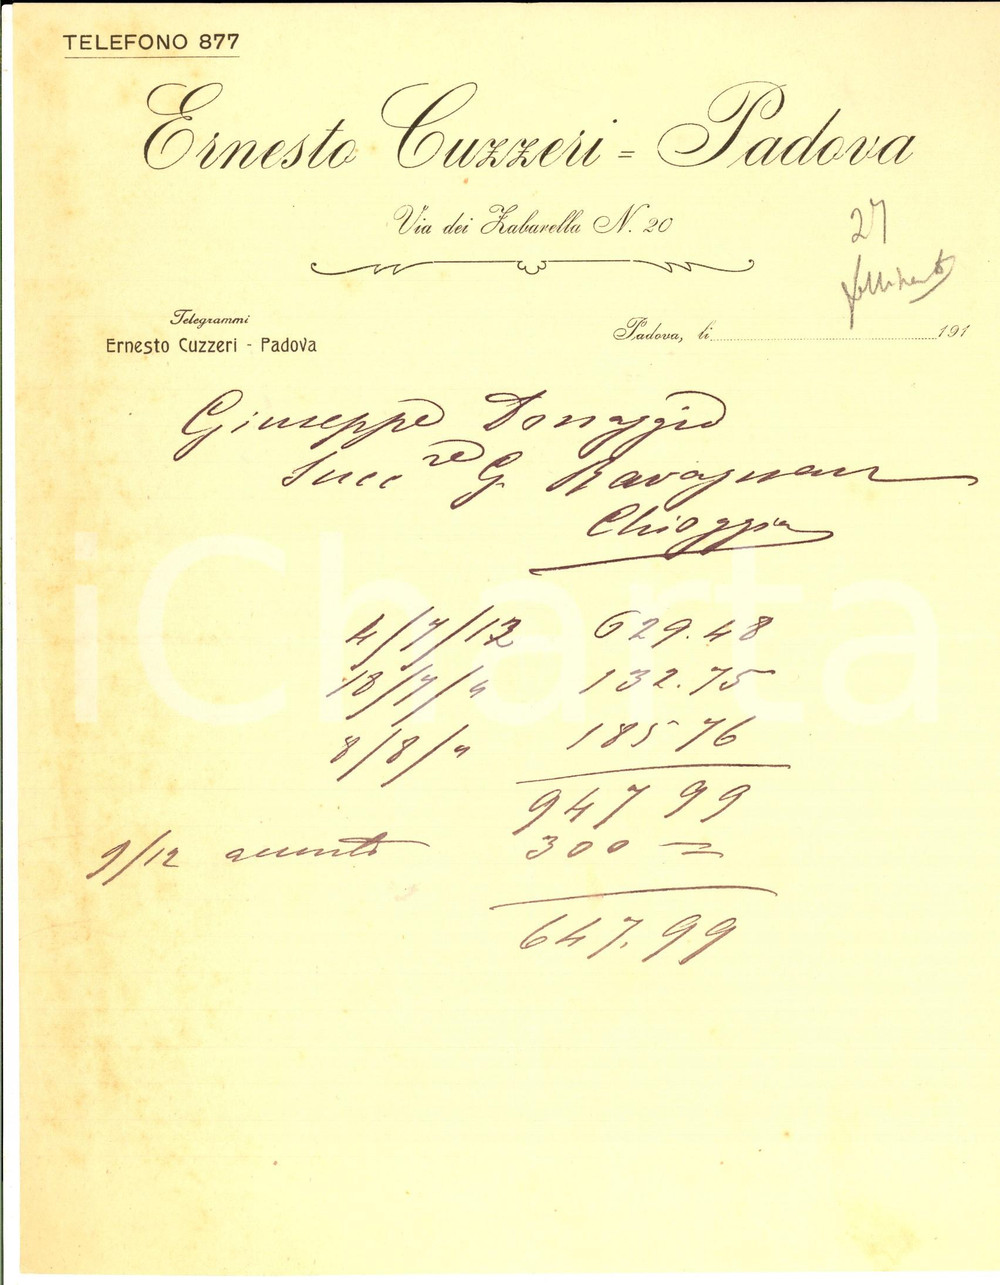 TELEFONO 877
Ernesto Cuzzeri = Padova
Via dei Zabarella N. 20
27
Telegrammi
Ernesto Cuzzeri - Padova
Padova, li 191
Giuseppe Donaggio
Succ re G. Ravagnan
Chioggia
4/7/12 629.48
18/7/" 132.75
8/8/" 185 76
947 99
9/12 acconto 300 =
647.99
iCharta